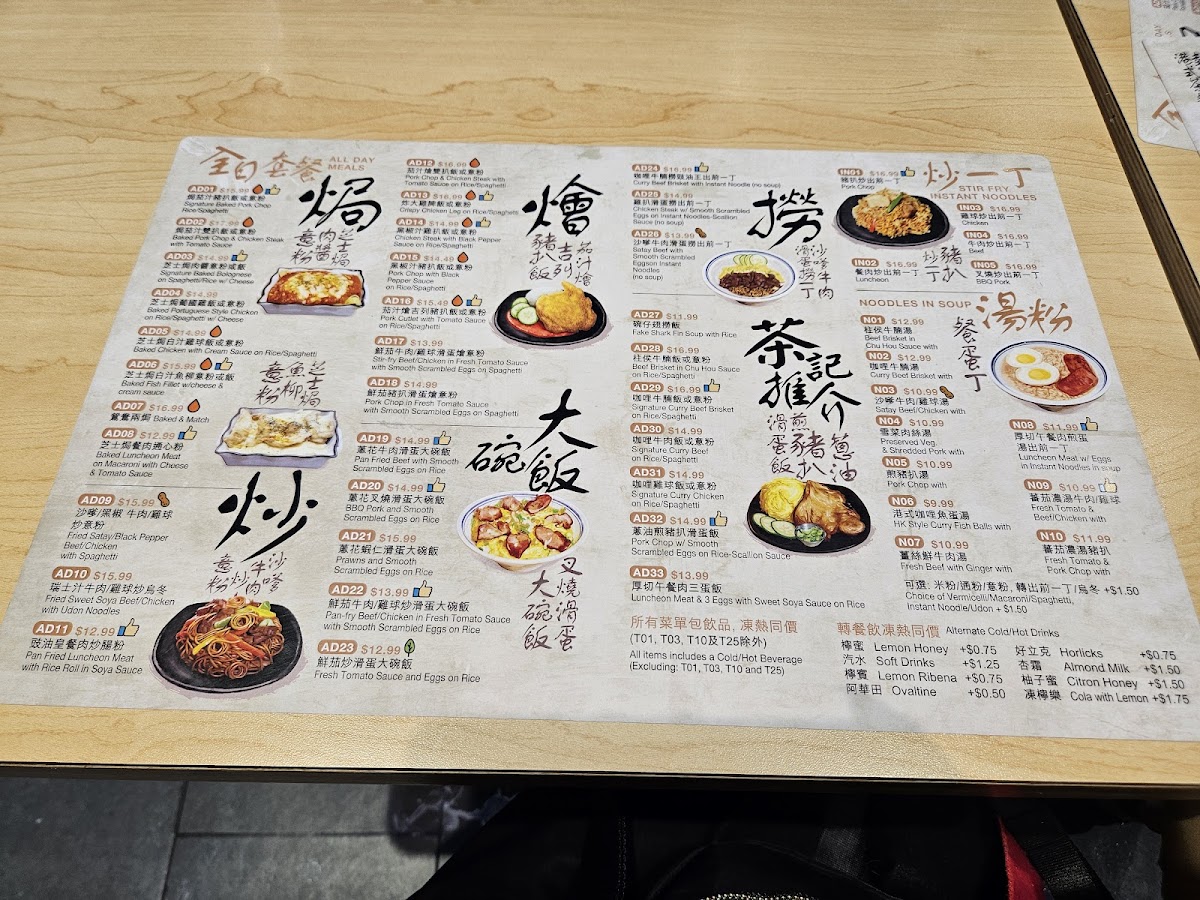 全日套餐 ALL DAY
MEALS
AD01 $15.99
焗茄汁豬扒飯或意粉
Signature Baked Pork Chop
Rice/Spaghetti
AD02 $17.99
焗茄汁雙扒飯或意粉
Baked Pork Chop & Chicken Steak
with Tomato Sauce
AD03 $14.99
芝士焗肉醬意粉或飯
Signature Baked Bolognese
on Spaghetti/Rice w/ Cheese
AD04 $14.99
芝士焗葡國雞飯或意粉
Baked Portuguese Style Chicken
on Rice/Spaghetti w/ Cheese
AD05 $14.99
芝士焗白汁雞球飯或意粉
Baked Chicken with Cream Sauce on Rice/Spaghetti
AD06 $15.99
芝士焗白汁魚柳意粉或飯
Baked Fish Fillet w/cheese &
cream sauce
AD07 $16.99
鴛鴦兩焗 Baked & Match
AD08 $12.99
芝士焗餐肉通心粉
Baked Luncheon Meat
on Macaroni with Cheese
& Tomato Sauce
焗
芝士焗
肉醬
意粉
芝士焗
魚柳
意粉
AD09 $15.99
沙嗲/黑椒 牛肉/雞球
炒意粉
Fried Satay/Black Pepper
Beef/Chicken
with Spaghetti
AD10 $15.99
瑞士汁牛肉/雞球炒烏冬
Fried Sweet Soya Beef/Chicken
with Udon Noodles
AD11 $12.99
豉油皇餐肉炒腸粉
Pan Fried Luncheon Meat
with Rice Roll in Soya Sauce
炒
沙嗲
牛肉
炒
意粉
AD12 $16.99
茄汁燴雙扒飯或意粉
Pork Chop & Chicken Steak with
Tomato Sauce on Rice/Spaghetti
AD13 $16.99
炸大雞髀飯或意粉
Crispy Chicken Leg on Rice/Spaghetti
AD14 $14.99
黑椒汁雞扒飯或意粉
Chicken Steak with Black Pepper
Sauce on Rice/Spaghetti
AD15 $14.49
黑椒汁豬扒飯或意粉
Pork Chop with
Black Pepper
Sauce on
Rice/Spaghetti
AD16 $15.49
茄汁燴吉列豬扒飯或意粉
Pork Cutlet with Tomato Sauce
on Rice/Spaghetti
AD17 $13.99
鮮茄牛肉/雞球滑蛋燴意粉
Stir-fry Beef/Chicken in Fresh Tomato Sauce
with Smooth Scrambled Eggs on Spaghetti
AD18 $14.99
鮮茄豬扒滑蛋燴意粉
Pork Chop in Fresh Tomato Sauce
with Smooth Scrambled Eggs on Spaghetti
燴
茄汁燴
吉列
豬扒飯
AD19 $14.99
蔥花牛肉滑蛋大碗飯
Pan Fried Beef with Smooth
Scrambled Eggs on Rice
AD20 $14.99
蔥花叉燒滑蛋大碗飯
BBQ Pork and Smooth
Scrambled Eggs on Rice
AD21 $15.99
蔥花蝦仁滑蛋大碗飯
Prawns and Smooth
Scrambled Eggs on Rice
AD22 $13.99
鮮茄牛肉/雞球炒滑蛋大碗飯
Pan-fry Beef/Chicken in Fresh Tomato Sauce
with Smooth Scrambled Eggs on Rice
AD23 $12.99
鮮茄炒滑蛋大碗飯
Fresh Tomato Sauce and Eggs on Rice
大碗飯
叉燒滑蛋
大碗飯
AD24 $16.99
咖喱牛腩撈豉油王出前一丁
Curry Beef Brisket with Instant Noodle (no soup)
AD25 $14.99
雞扒滑蛋撈出前一丁
Chicken Steak w/ Smooth Scrambled
Eggs on Instant Noodles-Scallion
Sauce (no soup)
AD26 $13.99
沙嗲牛肉滑蛋撈出前一丁
Satay Beef with
Smooth Scrambled
Eggson Instant
Noodles
(no soup)
撈
沙嗲牛肉
滑蛋撈丁
AD27 $11.99
碗仔翅撈飯
Fake Shark Fin Soup with Rice
AD28 $16.99
柱侯牛腩飯或意粉
Beef Brisket in Chu Hou Sauce
on Rice/Spaghetti
AD29 $16.99
咖喱牛腩飯或意粉
Signature Curry Beef Brisket
on Rice/Spaghetti
AD30 $14.99
咖哩牛肉飯或意粉
Signature Curry Beef
on Rice/Spaghetti
AD31 $14.99
咖哩雞飯或意粉
Signature Curry Chicken
on Rice/Spaghetti
AD32 $14.99
蔥油煎豬扒滑蛋飯
Pork Chop w/ Smooth
Scrambled Eggs on Rice-Scallion Sauce
AD33 $13.99
厚切午餐肉三蛋飯
Luncheon Meat & 3 Eggs with Sweet Soya Sauce on Rice
茶記
推介
蔥油
煎豬扒
滑蛋飯
所有菜單包飲品, 凍熱同價
(T01, T03, T10及T25除外)
All items includes a Cold/Hot Beverage
(Excluding: T01, T03, T10 and T25)
炒一丁
STIR FRY
INSTANT NOODLES
IN01 $16.99
豬扒炒出前一丁
Pork Chop
IN02 $16.99
餐肉炒出前一丁
Luncheon
IN03 $16.99
雞球炒出前一丁
Chicken
IN04 $16.99
牛肉炒出前一丁
Beef
IN05 $16.99
叉燒炒出前一丁
BBQ Pork
豬扒
炒丁
NOODLES IN SOUP 湯粉
N01 $12.99
柱侯牛腩湯
Beef Brisket in
Chu Hou Sauce with
N02 $12.99
咖喱牛腩湯
Curry Beef Brisket with
N03 $10.99
沙嗲牛肉/雞球湯
Satay Beef/Chicken with
N04 $10.99
雪菜肉絲湯
Preserved Veg.
& Shredded Pork with
N05 $10.99
煎豬扒湯
Pork Chop with
N06 $9.99
港式咖哩魚蛋湯
HK Style Curry Fish Balls with
N07 $10.99
薑絲鮮牛肉湯
Fresh Beef with Ginger with
餐蛋丁
N08 $11.99
厚切午餐肉煎蛋
湯出前一丁
Luncheon Meat w/ Eggs
in Instant Noodles in soup
N09 $10.99
蕃茄濃湯牛肉/雞球
Fresh Tomato &
Beef/Chicken with
N10 $11.99
蕃茄濃湯豬扒
Fresh Tomato &
Pork Chop with
可選: 米粉/通粉/意粉, 轉出前一丁/烏冬 +$1.50
Choice of Vermicelli/Macaroni/Spaghetti,
Instant Noodle/Udon + $1.50
轉餐飲凍熱同價 Alternate Cold/Hot Drinks
檸蜜 Lemon Honey +$0.75
汽水 Soft Drinks +$1.25
檸賓 Lemon Ribena +$0.75
阿華田 Ovaltine +$0.50
好立克 Horlicks +$0.75
杏霜 Almond Milk +$1.50
柚子蜜 Citron Honey +$1.50
凍檸樂 Cola with Lemon +$1.75